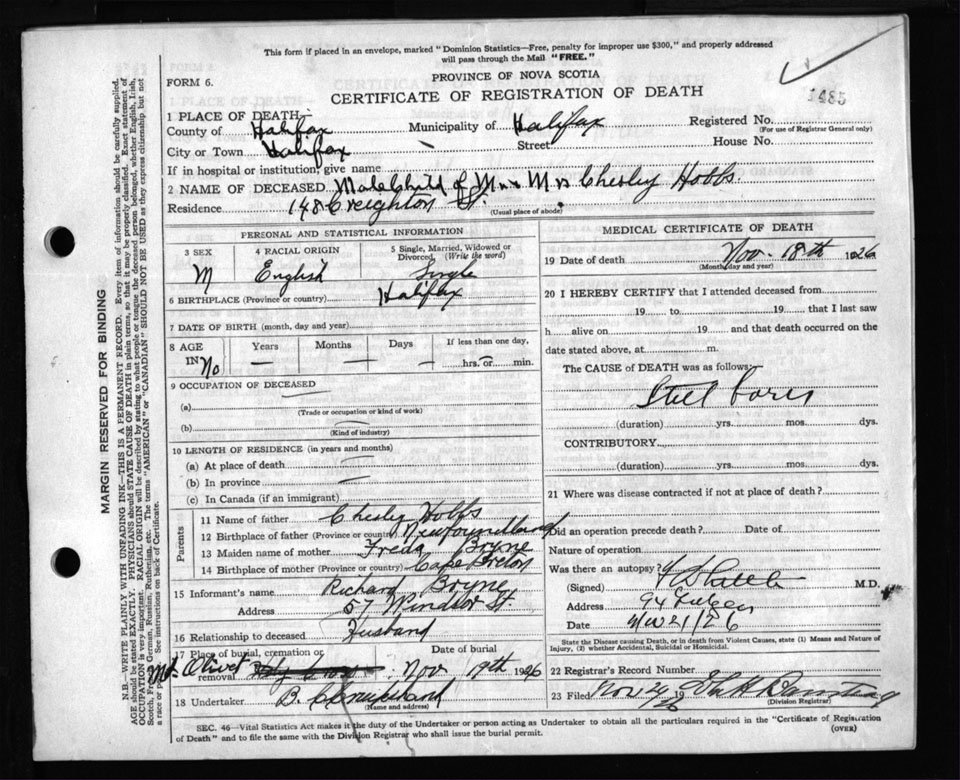 This form if placed in an envelope, marked "Dominion Statistics—Free, penalty for improper use $300," and properly addressed
will pass through the Mail "FREE."
FORM 6.
PROVINCE OF NOVA SCOTIA
CERTIFICATE OF REGISTRATION OF DEATH
1485
1 PLACE OF DEATH—
County of Halifax Municipality of Halifax Registered No.
(For use of Registrar General only)
City or Town Halifax Street House No.
If in hospital or institution, give name
2 NAME OF DECEASED Male Child of Mr & Mrs Chesley Hobbs.
Residence 148 Creighton St.
(Usual place of abode)
PERSONAL AND STATISTICAL INFORMATION
3 SEX 4 RACIAL ORIGIN 5 Single, Married, Widowed or
Divorced, (Write the word)
M English Single
6 BIRTHPLACE (Province or country) Halifax
7 DATE OF BIRTH (month, day and year)
8 AGE Years Months Days If less than one day,
IN No — — — hrs. or min.
9 OCCUPATION OF DECEASED
(a)
(Trade or occupation or kind of work)
(b)
(Kind of industry)
10 LENGTH OF RESIDENCE (in years and months)
(a) At place of death
(b) In province
(c) In Canada (if an immigrant)
Parents
11 Name of father Chesley Hobbs
12 Birthplace of father (Province or country) Newfoundland
13 Maiden name of mother Freda Bryne
14 Birthplace of mother (Province or country) Cape Breton
15 Informant's name Richard Bryne
Address 57 Windsor St.
16 Relationship to deceased Husband
17 Place of burial, cremation or Date of burial
removal Mt Olivet Holy Cross Nov 19th 1926
18 Undertaker B.
(Name and address)
MEDICAL CERTIFICATE OF DEATH
19 Date of death Nov. 18th 1926
(Month, day and year)
20 I HEREBY CERTIFY that I attended deceased from
19 to 19 , that I last saw
h alive on 19 and that death occurred on the
date stated above, at m.
The CAUSE of DEATH was as follows:
Still born
(duration) yrs. mos. dys.
CONTRIBUTORY.
(duration) yrs. mos. dys.
21 Where was disease contracted if not at place of death?
Did an operation precede death? Date of
Nature of operation
Was there an autopsy?
(Signed) M.D.
Address 94
Date Nov 21/26
State the Disease causing Death, or in death from Violent Causes, state (1) Means and Nature of
Injury, (2) whether Accidental, Suicidal or Homicidal.
22 Registrar's Record Number
23 Filed Nov 19
(Division Registrar)
SEC. 46—Vital Statistics Act makes it the duty of the Undertaker or person acting as Undertaker to obtain all the particulars required in the "Certificate of Registration
of Death" and to file the same with the Division Registrar who shall issue the burial permit.
(OVER)
MARGIN RESERVED FOR BINDING
N.B.—WRITE PLAINLY WITH UNFADING INK—THIS IS A PERMANENT RECORD. Every item of information should be carefully supplied.
AGE should be stated EXACTLY. PHYSICIANS should STATE CAUSE OF DEATH in plain terms, so that it may be properly classified. Exact statement of
OCCUPATION is very important. RACIAL ORIGIN will be described by stating to what people or tongue the deceased person belonged, whether English, Irish,
Scotch, French, German, Russian, Ruthenian, etc. The terms "AMERICAN" or "CANADIAN" SHOULD NOT BE USED as they express citizenship, but not
a race or people. See instructions on back of Certificate.